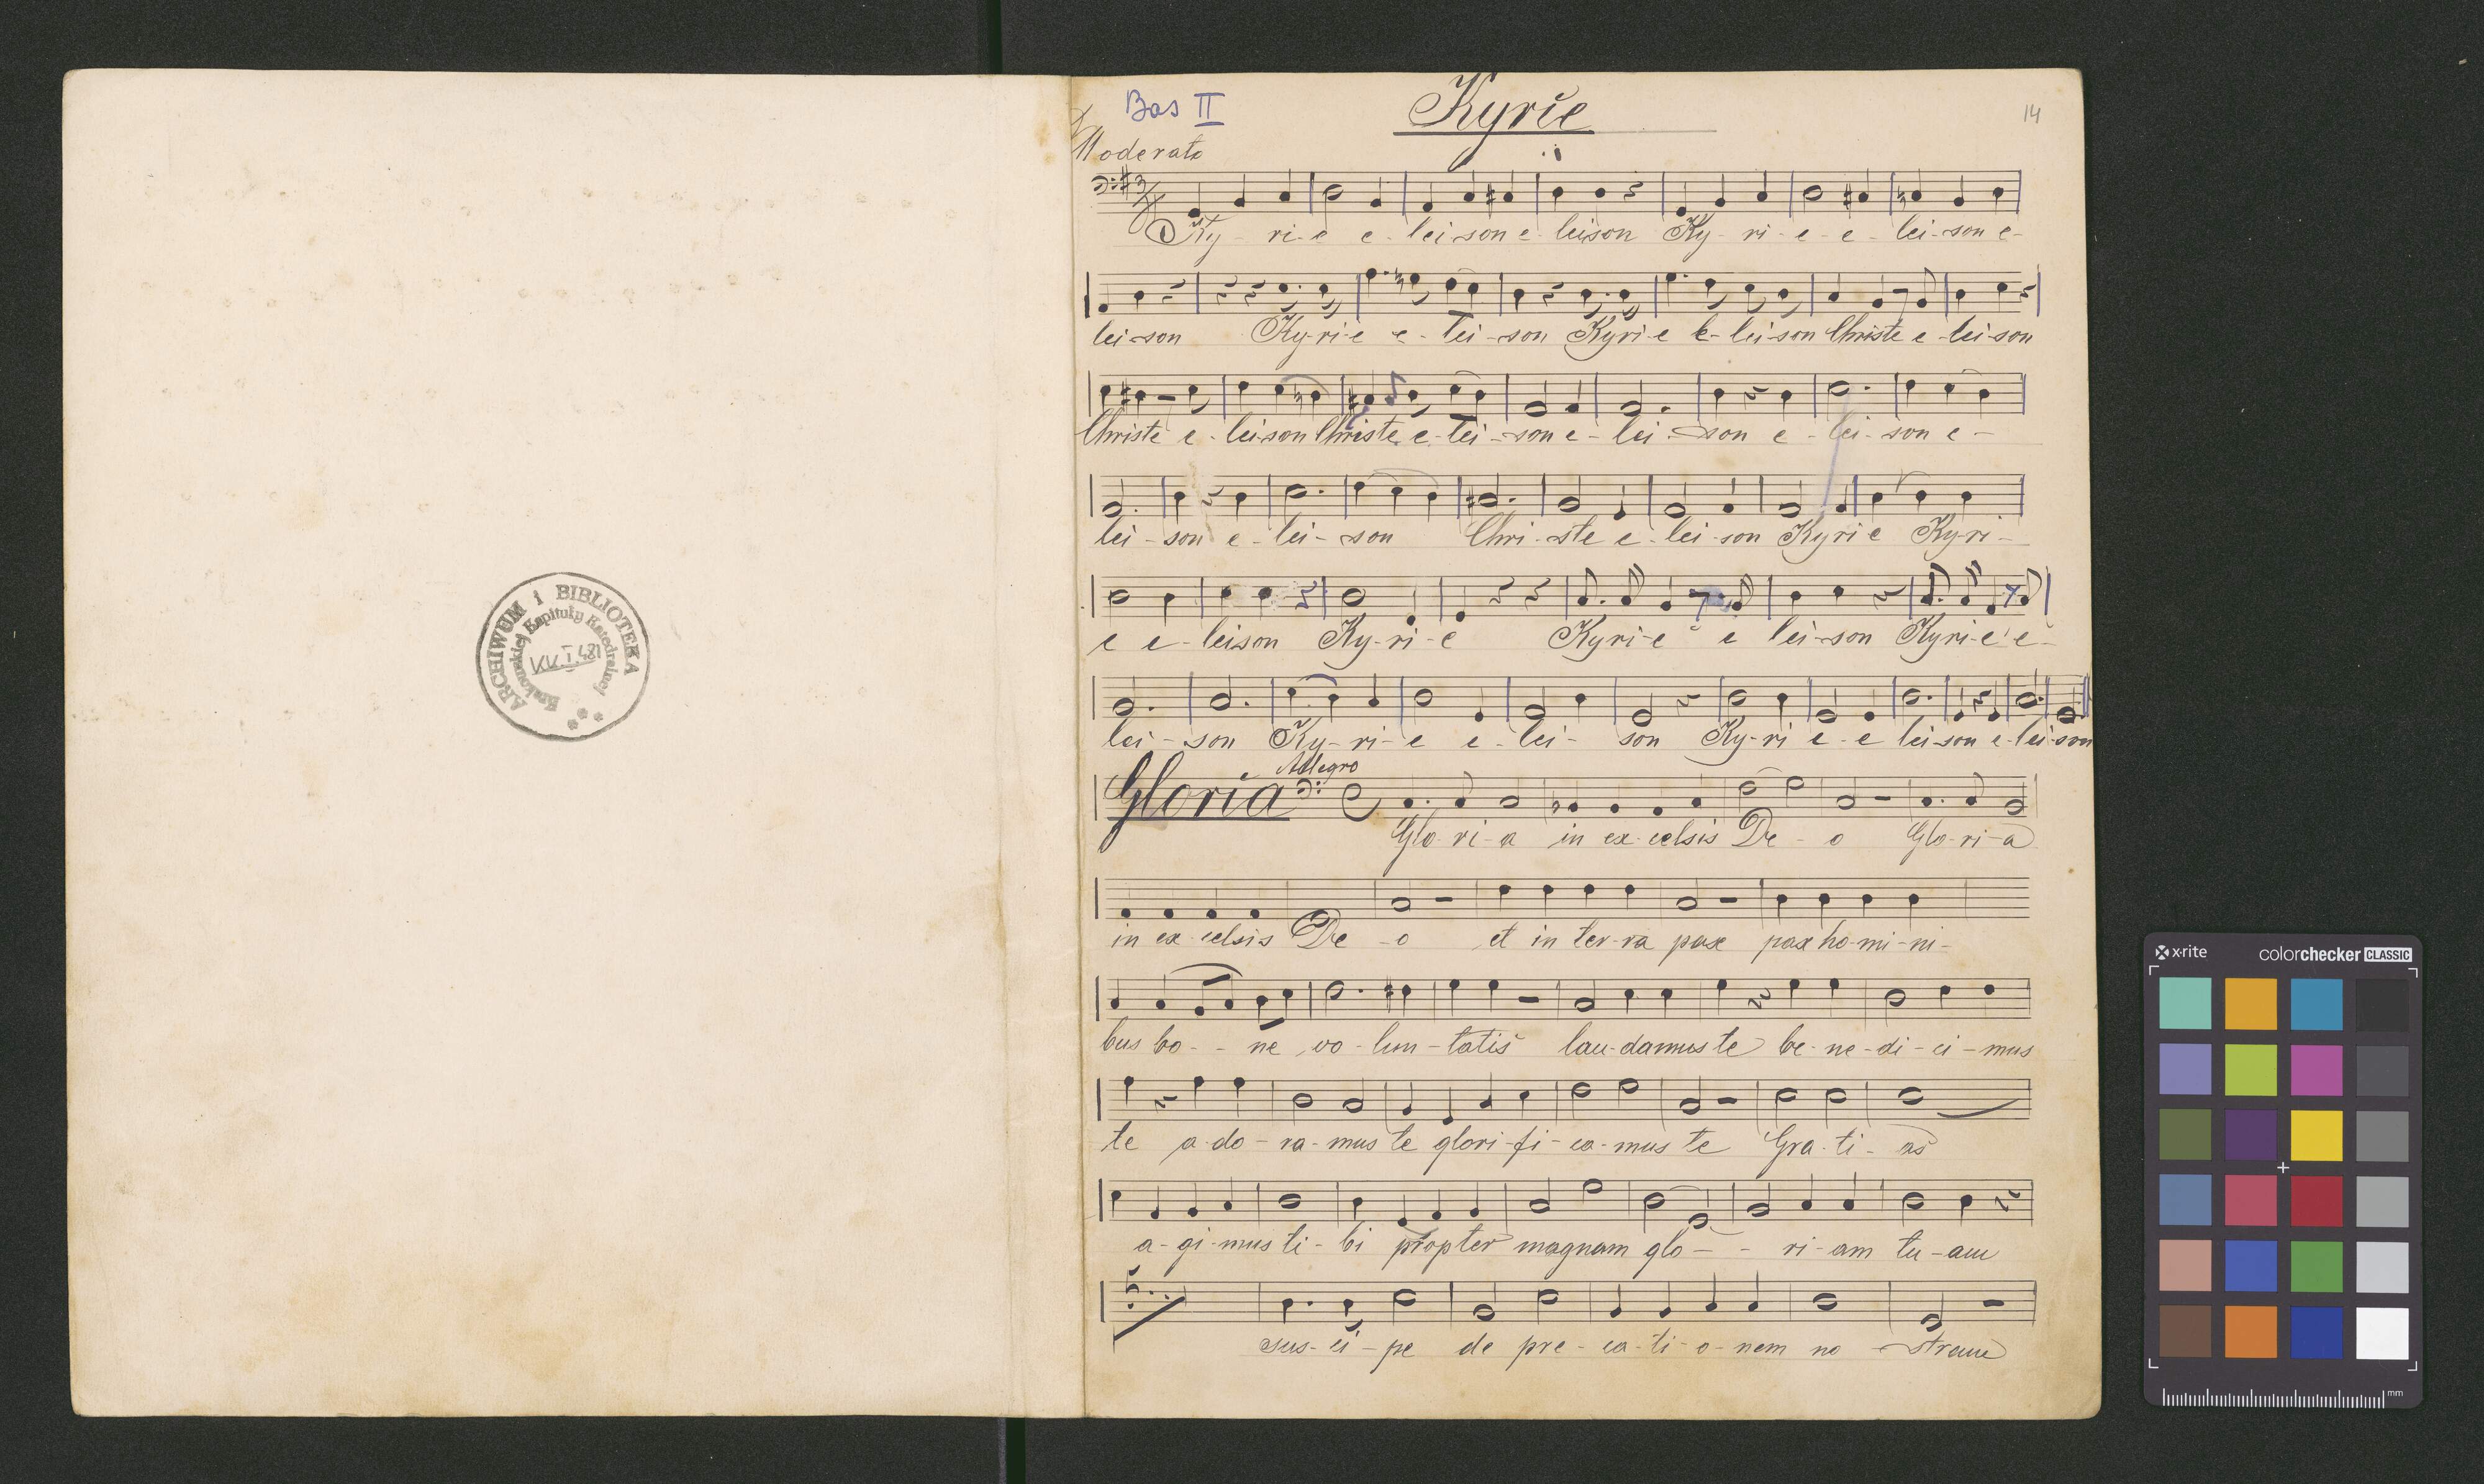 ARCHIWUM i BIBLIOTEKA
Krakowskiej Kapituły Katedralnej
KK.I.481
Bas II
Kyrie
14
Moderato
Ky - ri - e e - lei - son e - leison Ky - ri - e - e - lei - son e -
lei - son Ky - ri - e e - lei - son Kyri - e e - lei - son Christe e - lei - son
Christe e - leison Christe e - lei - son e - lei - son e - lei - son e -
lei - son e - lei - son Chri - ste e - lei - son Kyrie Ky - ri -
e e - leison Ky - ri - e Kyri - e e lei - son Kyri - e e -
lei - son Ky - ri - e e - lei - son Ky - ri e - e lei - son e - lei - son
Gloria Allegro
Glo - ri - a in ex - celsis De - o Glo - ri - a
in ex - celsis De - o et in ter - ra pax pax ho - mi - ni -
bus bo - - ne vo - lun - tatis lau - damus te be - ne - di - ci - mus
te a - do - ra - mus te glori - fi - ca - mus te Gra - ti - as
a - gi - mus ti - bi propter magnam glo - - ri - am tu - am
sus - ci - pe de pre - ca - ti - o - nem no - stram
x·rite colorchecker CLASSIC
mm